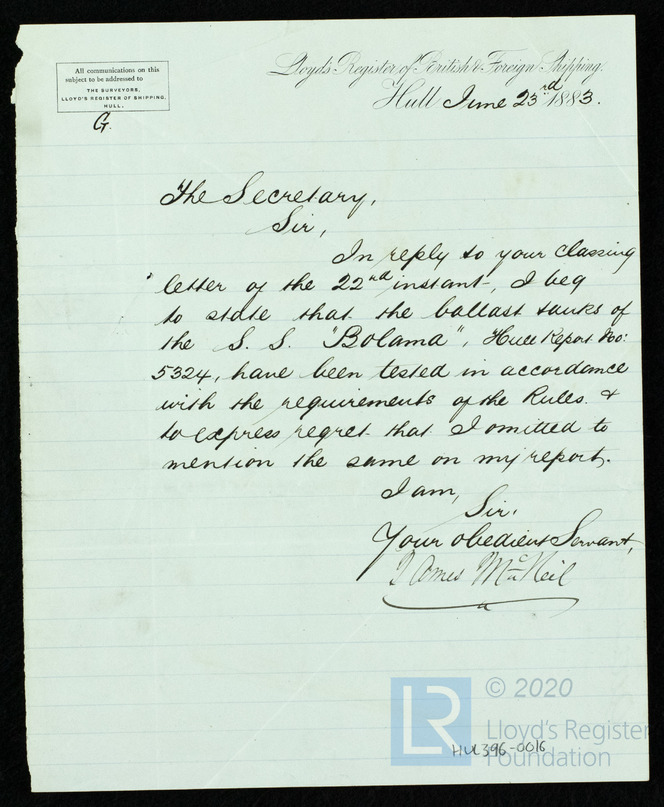 All communications on this
subject to be addressed to
THE SURVEYORS,
LLOYD'S REGISTER OF SHIPPING,
HULL.
G.
Lloyd's Register of British & Foreign Shipping.
Hull June 23rd 1883.
The Secretary,
Sir,
In reply to your classing
letter of the 22nd instant, I beg
to state that the ballast tanks of
the S. S. "Bolama", Hull Report No:
5324, have been tested in accordance
with the requirements of the Rules. &
to express regret that I omitted to
mention the same on my report.
I am,
Sir,
Your obedient Servant,
James McNeil
LR
© 2020
Lloyd's Register
Foundation
HUL396-0016